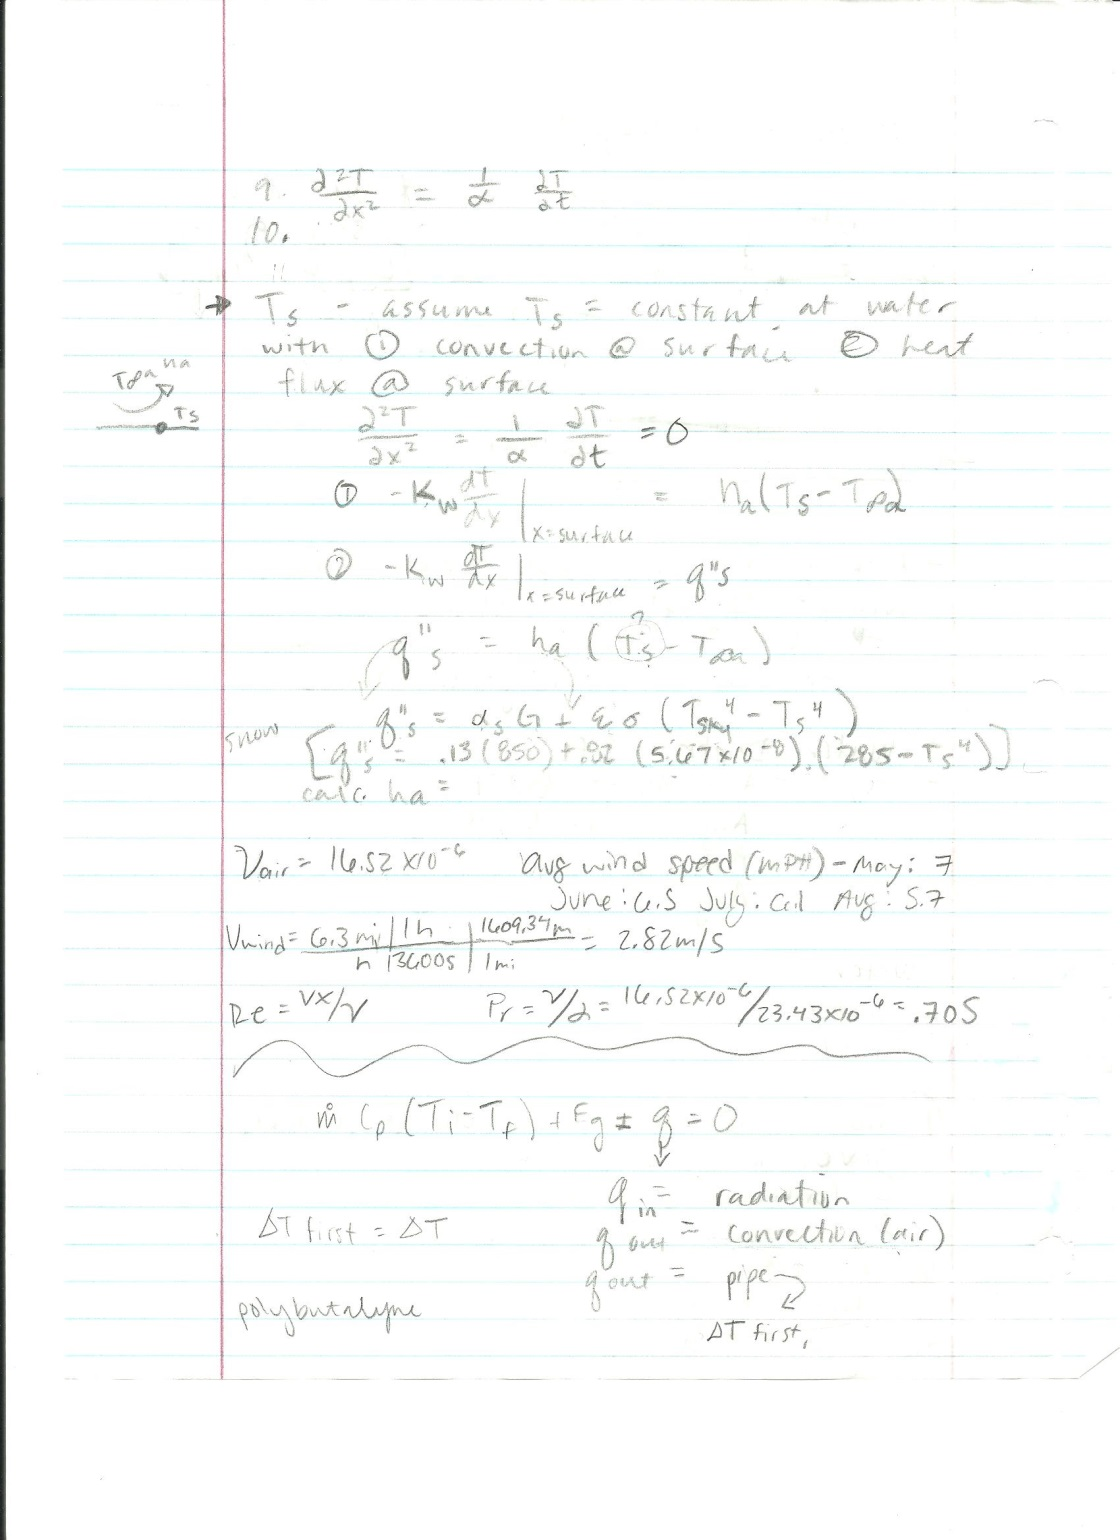 9. ∂²T/∂x² = 1/α ∂T/∂t
10.
→ Ts - assume Ts = constant at water
with ① convection @ surface ② heat
flux @ surface
T∞a ha
Ts
∂²T/∂x² = 1/α ∂T/∂t = 0
① -Kw dt/dx |x=surface = ha(Ts - T∞a)
② -Kw dT/dx |x=surface = q"s
q"s = ha (Ts - T∞a)
?
q"s = αsG + εσ (Tsky⁴ - Ts⁴)
snow
[q"s = .13(850) + .82 (5.67x10⁻⁸).(285-Ts⁴)]
calc. ha =
Vair = 16.52 x10⁻⁶ avg wind speed (MPH) - May: 7
June: 6.5 July: 6.1 Aug: 5.7
Vwind = 6.3 mi/h | 1h/3600s | 1609.34m/1mi = 2.82m/s
Re = VX/ν Pr = ν/α = 16.52x10⁻⁶/23.43x10⁻⁶ = .705
ṁ Cp (Ti - Tf) + Eg ± q = 0
↓
q in = radiation
ΔT first = ΔT
q out = convection (air)
q out = pipe
polybutalyne
ΔT first,